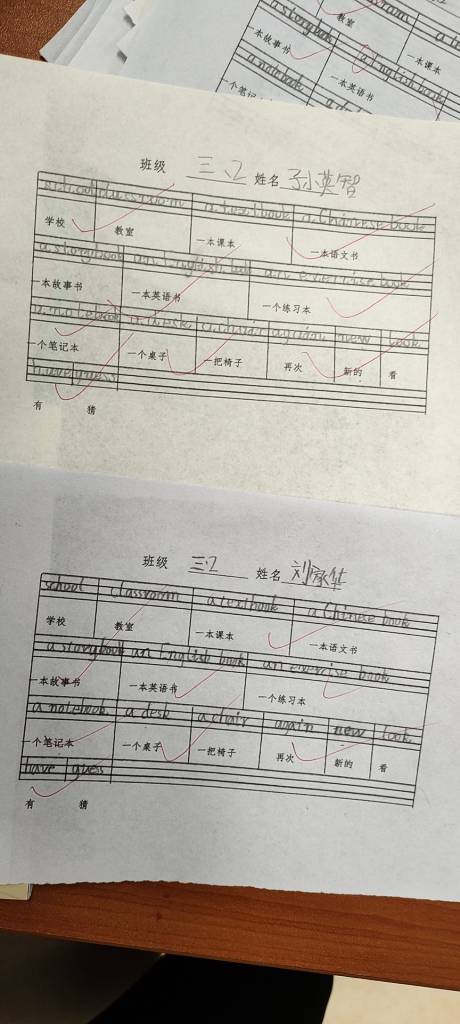 教室
a storybook
一本故事书
a English book
一本课本
a notebook
一本英语书
一个笔记
班级 三.2 姓名 孙英智
school classroom a textbook a Chainese book
学校 教室 一本课本 一本语文书
a storybook an English book an exercise book
一本故事书 一本英语书 一个练习本
a notebook a desk a chair again new look
一个笔记本 一个桌子 一把椅子 再次 新的 看
have guess
有 猜
班级 三.2 姓名
school classroom a textbook a Chinese book
学校 教室 一本课本 一本语文书
a storybook an English book an exercise book
一本故事书 一本英语书 一个练习本
a notebook a desk a chair again new look
一个笔记本 一个桌子 一把椅子 再次 新的 看
have guess
有 猜